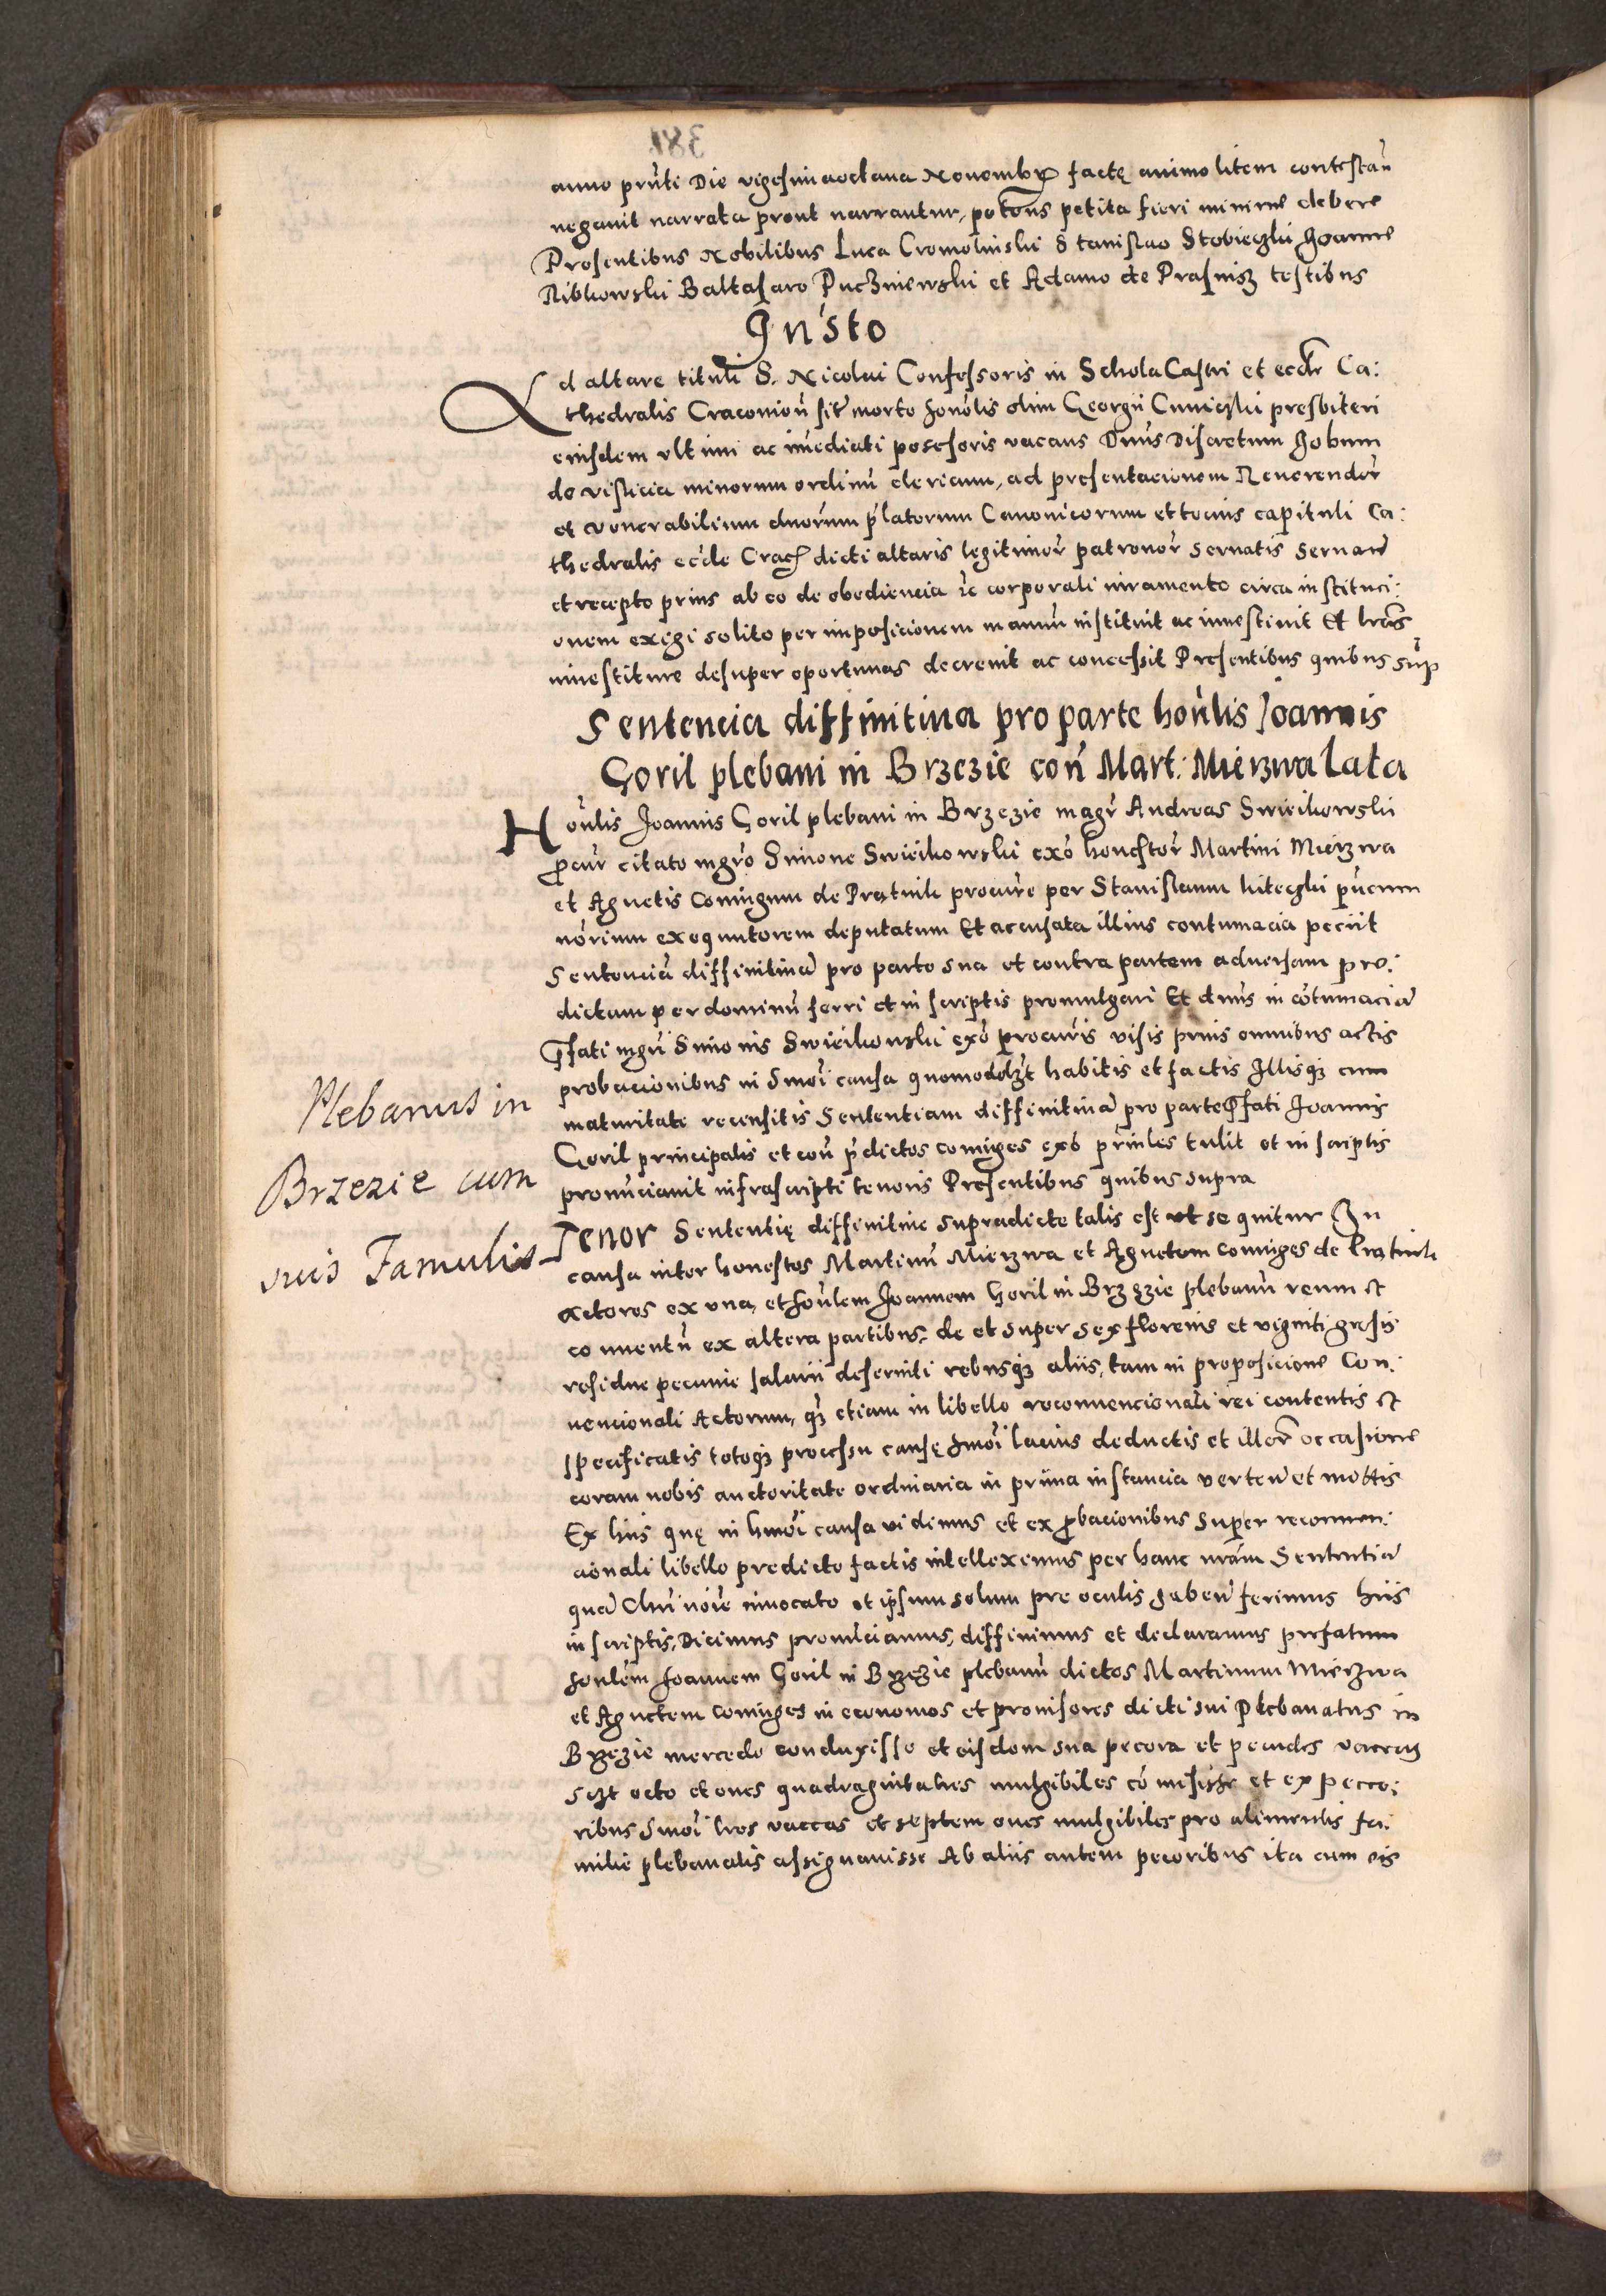 anno prnti Die vigesimaoctaua Nouembr factę animo litem contestan
negauit narrata prout narrantur, petita fieri minime debere
Presentibus Nobilibus Luca Cromolinski Stanislao Stobieczki Joanne
Ribkowski Baltasaro Puczniewski et Adamo de Prasnisz testibus
Insto
Ad altare tituli S. Nicolai Confessoris in Schola Castri et eccle Ca:
thedralis Cracouien sit morte honolis olim Georgii Cunieczki presbiteri
eiusdem vltimi ac imediati possesoris vacans Dnus Discretum Jobum
de vislicia minorum ordinu clericum, ad presentacionem Reuerendor
et venerabilium dnorum platorum Canonicorum et tocius capituli Ca:
thedralis eccle Crac dicti altaris legitimor patronor seruatis seruand
et recepto prius ab eo de obediencia ic corporali iuramento circa instituci:
onem exigi solito per imposicionem manuu instituit ac inuestiuit Et lras
inuestiture desuper oportunas decreuit ac concessit Presentibus quibus sup
Sentencia diffinitiua pro parte honlis Joannis
Goril plebani in Brzezie con Mart: Mierzwa lata
Honlis Joannis Goril plebani in Brzezie magr Andreas Swieikowski
procur citato mgro Simone Swieikowski exo honestor Martini Mierzwa
et Agnetis Coniugum de procure per Stanislaum
norium exequutorem deputatum Et acusata illius contumacia peciit
Sentencia diffinitiua pro parte sua et contra partem aduersam pre:
dictam per dominu ferri et in scriptis promulgari Et dnus in cotumacia
pfati mgri Simonis Swieikowski exo procuris visis prius omnibus actis
probacionibus in hmoi causa quomodolzt habitis et factis Illisqz cum
maturitate recensitis Sententiam diffinitiua pro parte pfati Joannis
Goril principalis et con pdictos coniuges exo prinles tulit et in scriptis
pronuciauit infrascripti tenoris Presentibus quibus supra
Plebanus in
Brzezie cum
suis Famulis
Tenor Sententię diffinitiue supradicte talis est vt sequitur In
causa inter honestos Martinu Mierzwa et Agnetem coniuges de
actores ex vna, et honlem Joannem Goril in Brzezie plebanu reum et
conuentu ex altera partibus, de et super sex florenis et viginti grosis
residue pecunie salarii deseruiti rebusqz aliis, tam in proposicione Con:
uencionali Actorum, qz etiam in libello reconuencionali rei contentis et
specificatis totoqz processu causę hmoi lacius deductis et illor occasione
coram nobis auctoritate ordinaria in prima instancia verten et mottis
Ex hiis quę in hmoi causa vidimus et ex probacionibus super reconuen:
cionali libello predicto factis intelleximus per hanc nram Sententia
qua Chri noie inuocato et ipsum solum pre oculis haben ferimus hiis
in scriptis, Dicimus pronuciamus, diffinimus et declaramus prefatum
honlem Joannem Goril in Brzezie plebanu dictos Martinum Mierzwa
et Agnetem coniuges in economos et prouisores dicti sui Plebanatus in
Brzezie mercede conduxisse et eisdem sua pecora et pecudes vaccas
oct octo et oues quadragintatres mulgibiles comisisse et ex pecco:
ribus hmoi tres vaccas et septem oues mulgibiles pro alimentis fa:
milie plebanalis assignauisse Ab aliis autem pecoribus ita cum eis